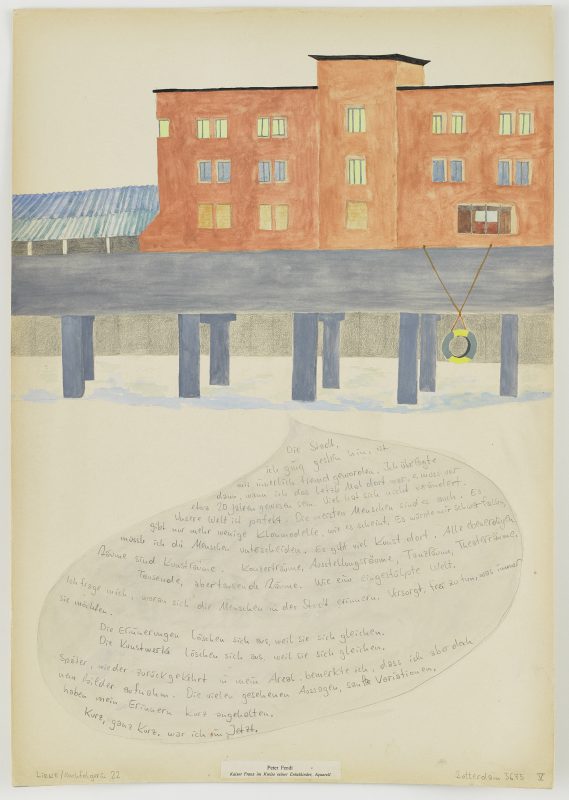 Die Stadt,
ich ging gestern hin, ist
mir innerlich fremd geworden. Ich überlegte
dann, wann ich das letzte Mal dort war, es muss vor
etwa 20 Jahren gewesen sein. Viel hat sich nicht verändert.
Unsere Welt ist perfekt. Die meisten Menschen sind es auch. Es
gibt nur mehr wenige Klonmodelle, wie es scheint. Es würde mir schwer fallen,
müsste ich die Menschen unterscheiden. Es gibt viel Kunst dort. Alle
Räume sind Kunsträume. Konzerträume, Ausstellungsräume, Tanzräume, Theaterräume,
Tausende, abertausende Räume. Wie eine eingestülpte Welt.
Ich frage mich, woran sich die Menschen in der Stadt erinnern. Versorgt, frei zu tun, was immer
sie möchten.
Die Erinnerungen löschen sich aus, weil sie sich gleichen.
Die Kunstwerke löschen sich aus, weil sie sich gleichen.
Später, wieder zurückgekehrt in mein Areal, bemerkte ich, dass ich aber doch
neue Bilder aufnahm. Die vielen gesehenen Aussagen, sanfte Variationen,
haben mein Erinnern kurz angehalten.
Kurz, ganz kurz, war ich im Jetzt.
Peter Fendi
Kaiser Franz im Kreise seiner Enkelkinder, Aquarell
Liewe/Nachfolgerin 22
Zotterdam 3675 V